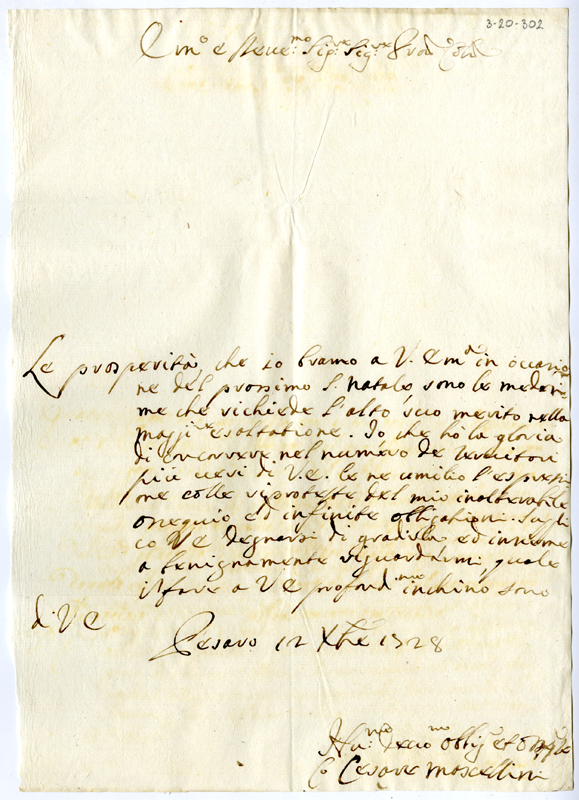 3-20-302
Em.º e Rever.mo Sig.re Sig.re
Le prosperità, che io bramo a V. Em.ª in occasio
ne del prossimo S. Natale sono le medesi
me che richiede l'alto suo merito nella
magg.re esaltatione. Io, che hò la gloria
di concorrere nel numero de servitori
più veri di V.E. le ne umilio l'espressi
one colle riproteste del mio inalterabile
ossequio ed infinite obligationi. Suppli
co VE degnarsi di gradirla ed insieme
a benignamente riguardarmi, quale
in fare a VE profond.mo inchino sono
di VE
Pesaro 12 Xbre 1728
Hu.mo oblig.mo et
Cesare Moscellini